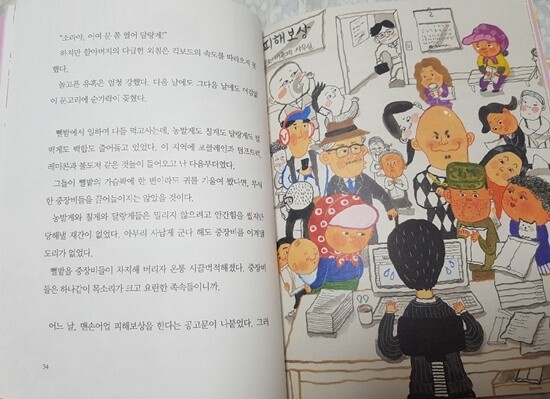 "소라야, 어여 문 쫌 열어 달랑게!"
하지만 할아버지의 다급한 외침은 킥보드의 속도를 따라오지 못
했다.
놀고픈 유혹은 엄청 강했다. 다음 날에도 그다음 날에도 여김없
이 문고리에 숟가락이 꽂혔다.
뻘밭에서 일하며 나들 먹고사는데, 농발게도 칠게도 달랑게도 떡
벅게도 백합도 줄어들고 있었다. 이 지역에 포클레인과 덤프트럭,
레미콘과 불도저 같은 것들이 들어오고 난 다음부터였다.
그들이 뻘밭의 가슴팍에 한 번이라도 귀를 기울여 봤다면, 무식
한 중장비들을 끌어들이지는 않았을 것이다.
농발게와 칠게와 달랑게들은 밀리지 않으려고 안간힘을 썼지만
당해낼 재간이 없었다. 아무리 사납게 군다 해도 중장비를 이겨낼
도리가 없었다.
뻘밭을 중장비들이 차지해 버리자 온통 시끌벅적해졌다. 중장비
들은 하나같이 목소리가 크고 요란한 족속들이니까.
어느 날, 맨손어업 피해보상을 한다는 공고문이 나붙었다. 그러
34
피해보상
2